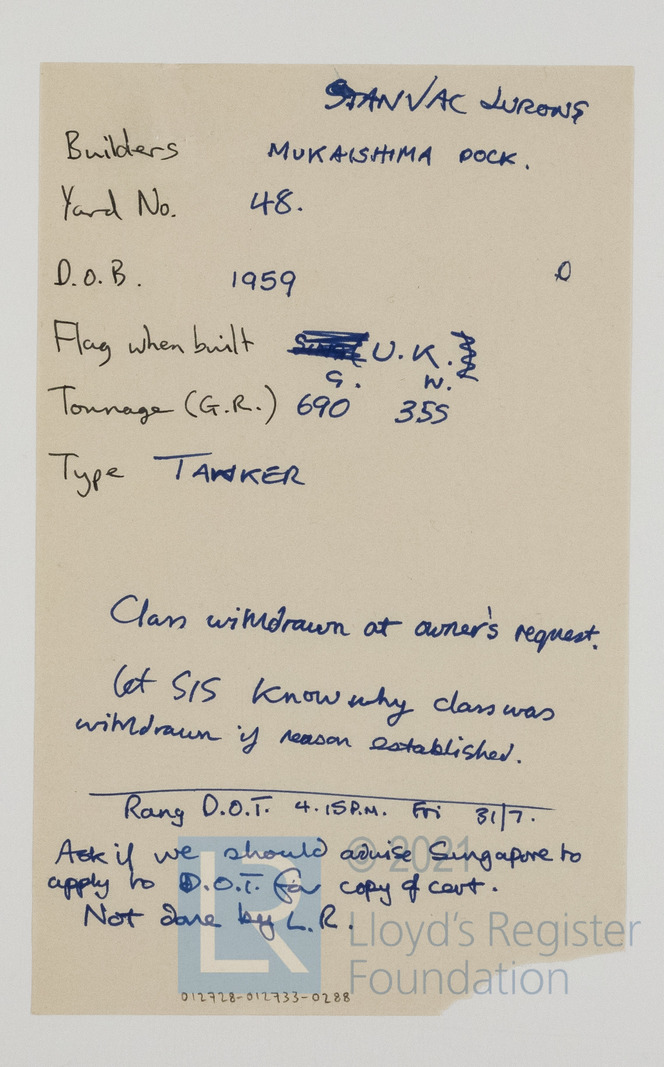 STANVAC LURONG
Builders MUKAISHIMA DOCK.
Yard No. 48.
D.O.B. 1959 O
Flag when built U.K.
G. N.
Tonnage (G.R.) 690 355
Type TANKER
Class withdrawn at owner's request.
Let SIS know why class was
withdrawn if reason established.
Rang D.O.T. 4.15P.M. Fri 31/7.
Ask if we should advise Singapore to
apply to D.O.T. for copy of cert.
Not done by L.R.
© 2021
LR
Lloyd's Register
Foundation
012728-012733-0288